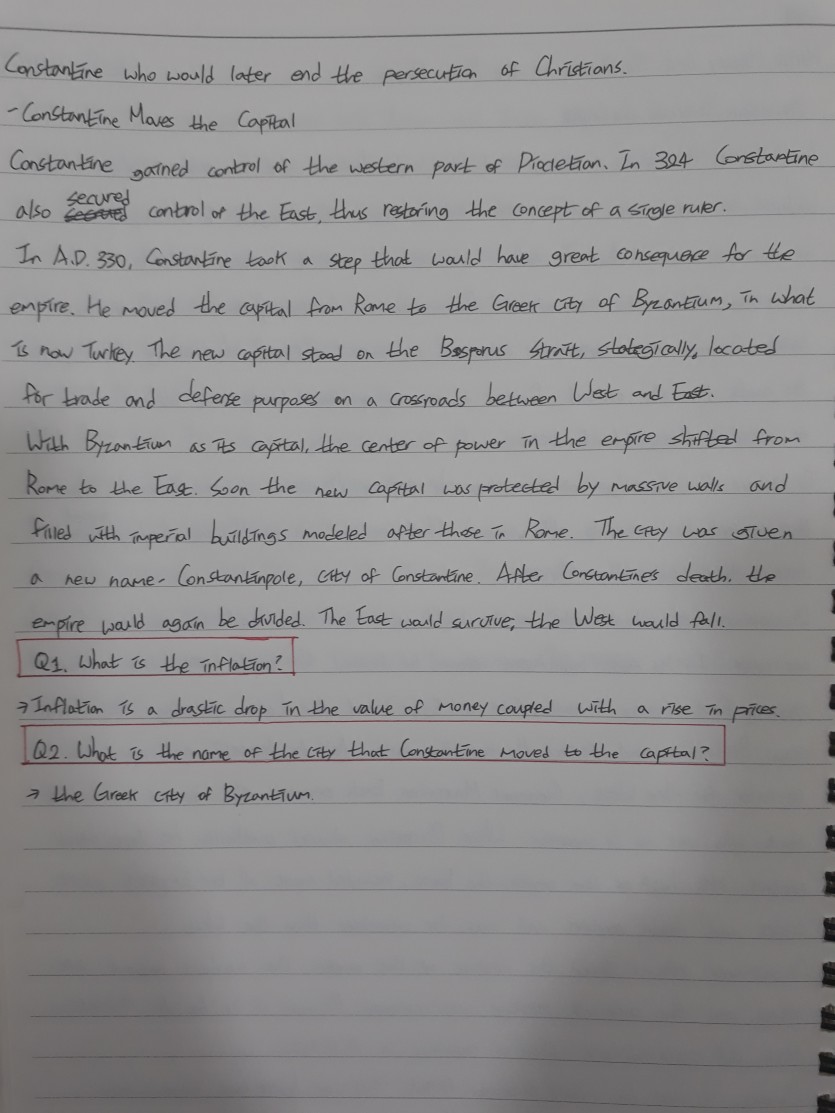 Constantine who would later end the persecution of Christians.
- Constantine Moves the Capital
Constantine gained control of the western part of Diocletian. In 324 Constantine
also secured secured control of the East, thus restoring the concept of a single ruler.
In A.D. 330, Constantine took a step that would have great consequence for the
empire. He moved the capital from Rome to the Greek city of Byzantium, in what
is now Turkey. The new capital stood on the Bosporus Strait, stategically, located
for trade and defense purposes on a crossroads between West and East.
With Byzantium as its capital, the center of power in the empire shifted from
Rome to the East. Soon the new capital was protected by massive walls and
filled with imperial buildings modeled after those in Rome. The city was given
a new name - Constantinpole, city of Constantine. After Constantine's death. the
empire would again be divided. The East would survive; the West would fall.
Q1. What is the inflation?
→ Inflation is a drastic drop in the value of money coupled with a rise in prices.
Q2. What is the name of the city that Constantine moved to the capital?
→ the Greek city of Byzantium.